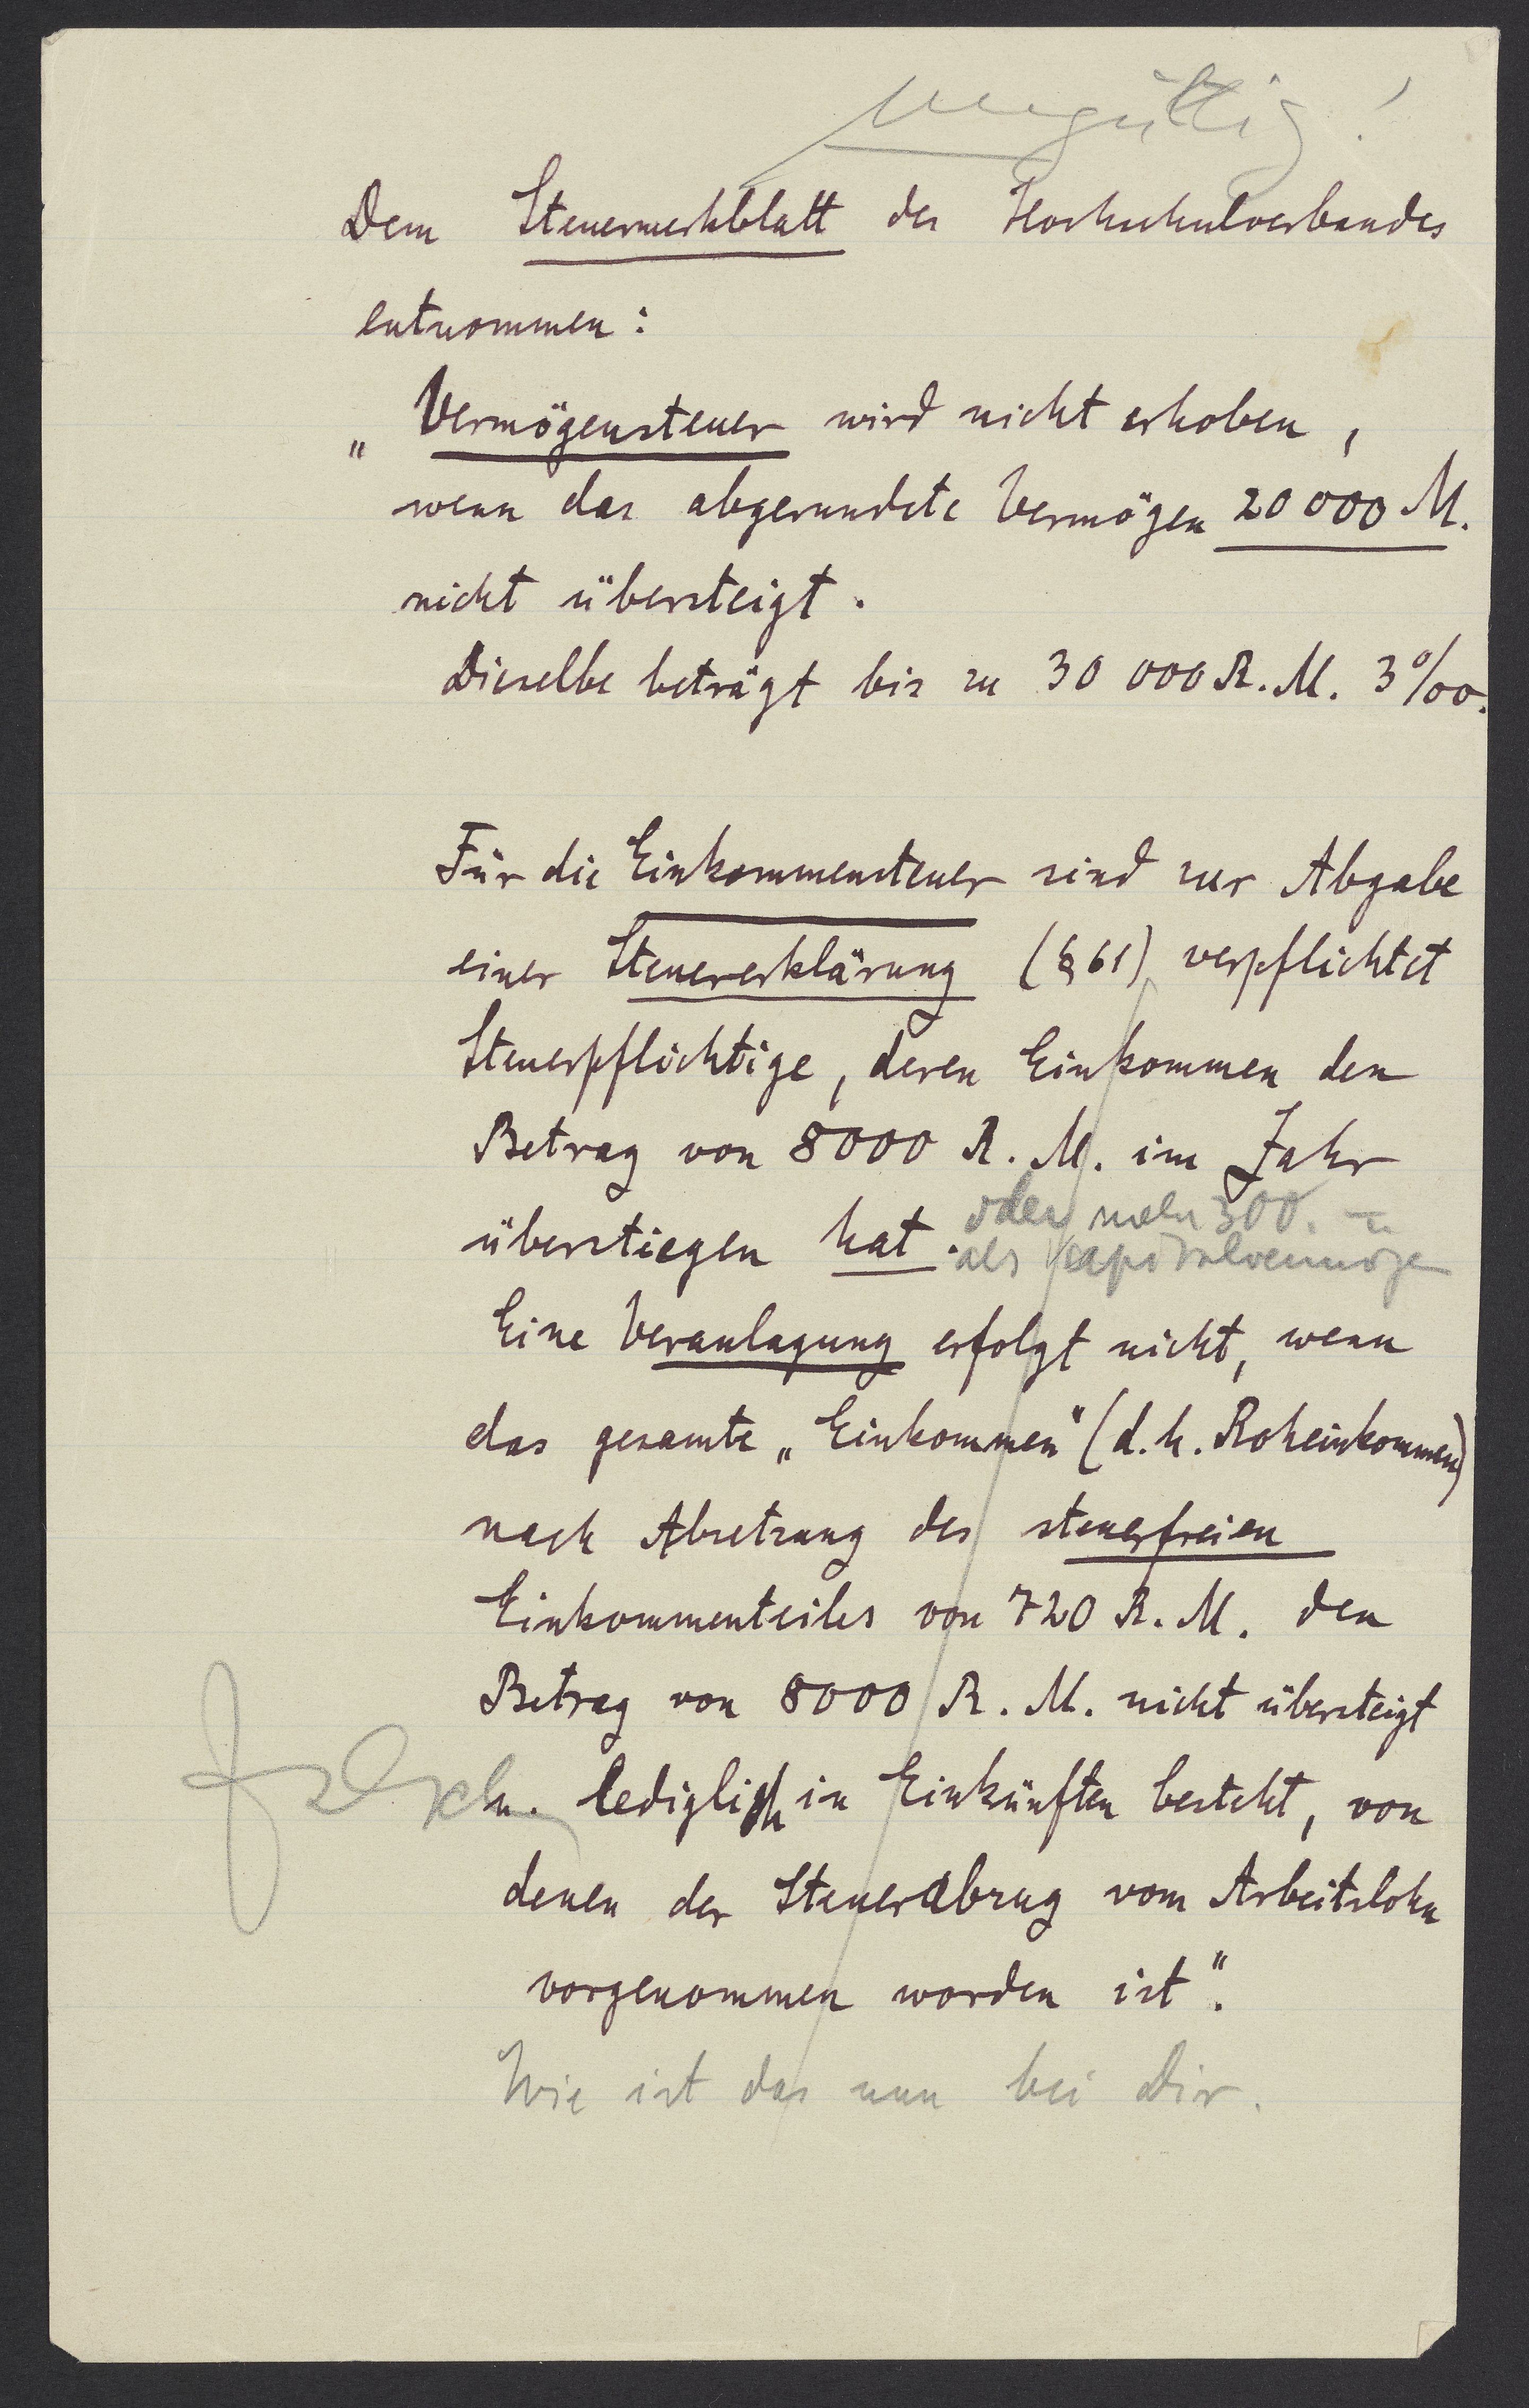 ungültig!
Dem Steuermerkblatt des Hochschulverbandes
entnommen:
„Vermögensteuer wird nicht erhoben,
wenn das abgerundete Vermögen 20 000 M.
nicht übersteigt.
Dieselbe beträgt bis zu 30 000 R. M. 3‰.
Für die Einkommensteuer sind zur Abgabe
einer Steuererklärung (§ 61) verpflichtet
Steuerpflichtige, deren Einkommen den
Betrag von 8000 R. M. im Jahr
überstiegen hat. oder mehr 300.–
als Kapitalvermögen
Eine Veranlagung erfolgt nicht, wenn
das gesamte „Einkommen" (d. h. Roheinkommen)
nach Absetzung des steuerfreien
Einkommenteiles von 720 R. M. den
Betrag von 8000 R. M. nicht übersteigt
falsch u. lediglich in Einkünften besteht, von
denen der Steuerabzug vom Arbeitslohn
vorgenommen worden ist".
Wie ist das nun bei Dir.